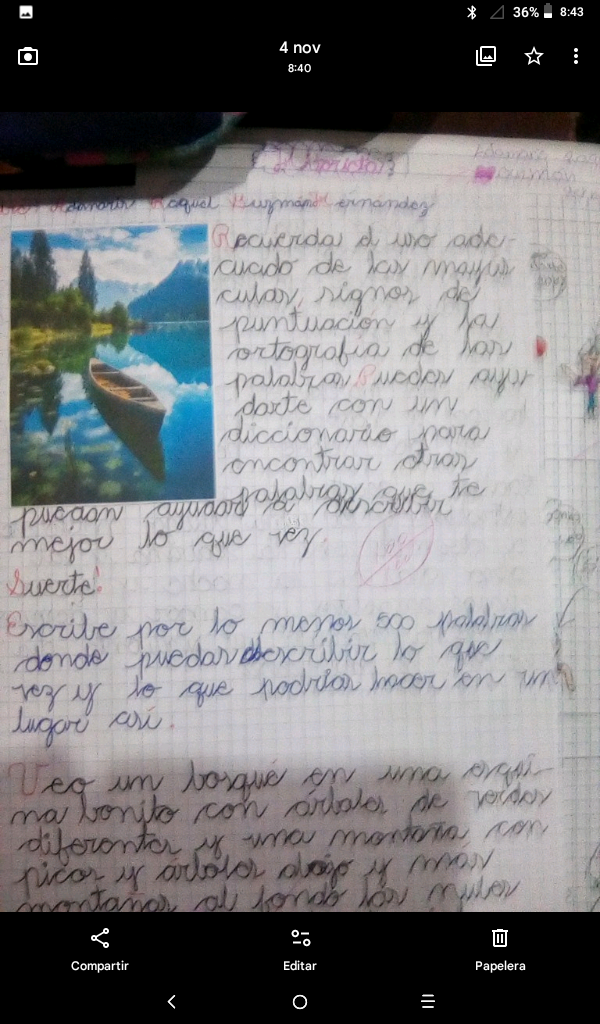 36% 8:43
4 nov
8:40
Raquel Guzmán Hernández
Recuerda el uso ade-
cuado de las mayus
culas, signos de
puntuacion y la
ortografia de las
palabras. Puedes ayu
darte con un
diccionario para
encontrar otras
palabras que te
puedan ayudar a describir
mejor lo que vez.
Suerte!
Escribe por lo menos 500 palabras
donde puedas describir lo que
vez y lo que podrias hacer en un
lugar así.
Veo un bosque en una esqui-
na bonito con árboles de verdes
diferentes y una montaña con
picos y árboles abajo y más
montañas al fondo las nubes
Compartir
Editar
Papelera